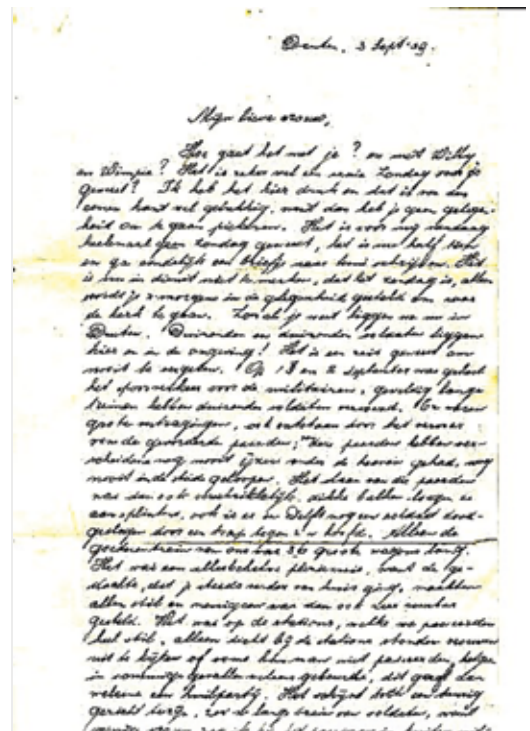 Druten, 3 Sept '39.
Mijn lieve vrouw,
Hoe gaat het met je? en met Willy
en Wimpie? Het is zeker wel een saaie Zondag voor je
geweest? Ik heb het hier druk en dat is van den
eenen kant wel gelukkig, want dan heb je geen gelegen-
heid om te gaan piekeren. Het is voor mij vandaag
heelemaal geen zondag geweest, het is nu half tien
en ga eindelijk een briefje naar huis schrijven. Het
is nu in dienst niet te merken, dat het zondag is, alleen
wordt je 's morgens in de gelegenheid gesteld om naar
de kerk te gaan. Zooals je weet liggen we nu in
Druten. Duizenden en duizenden soldaten liggen
hier en in de omgeving! Het is een reis geweest om
nooit te vergeten. Op 1 en 2 September was geheel
het spoorverkeer voor de militairen, geweldig lange
treinen hebben duizenden soldaten vervoerd. Er waren
groote vertragingen, ook ontstaan door het vervoer
van de gevorderde paarden; deze paarden hebben ver-
scheidene nog nooit ijzers onder de hoeven gehad, nog
nooit in de stad geloopen. Het slaan van die paarden
was dan ook verschrikkelijk, dikke balken sloegen ze
aan splinters, ook is er in Delft nog een soldaat dood-
geslagen door een trap tegen z'n hoofd. Alleen de
goederentrein van ons was 36 groote wagons lang.
Het was een allesbehalve pleizierreis, want de ge-
dachte, dat je steeds verder van huis ging, maakte
allen stil en menigeen was dan ook zeer somber
gesteld. Het was op de stations, welke we passeerden
heel stil, alleen dicht bij de stations stonden vrouwen
uit te kijken of soms hun man niet passeerde, hetgeen
in sommige gevallen eens gebeurde, dit gaf dan
weleens een huilpartij. Het schijnt toch een treurig
gezicht te zijn, zoo'n lange trein vol soldaten, want